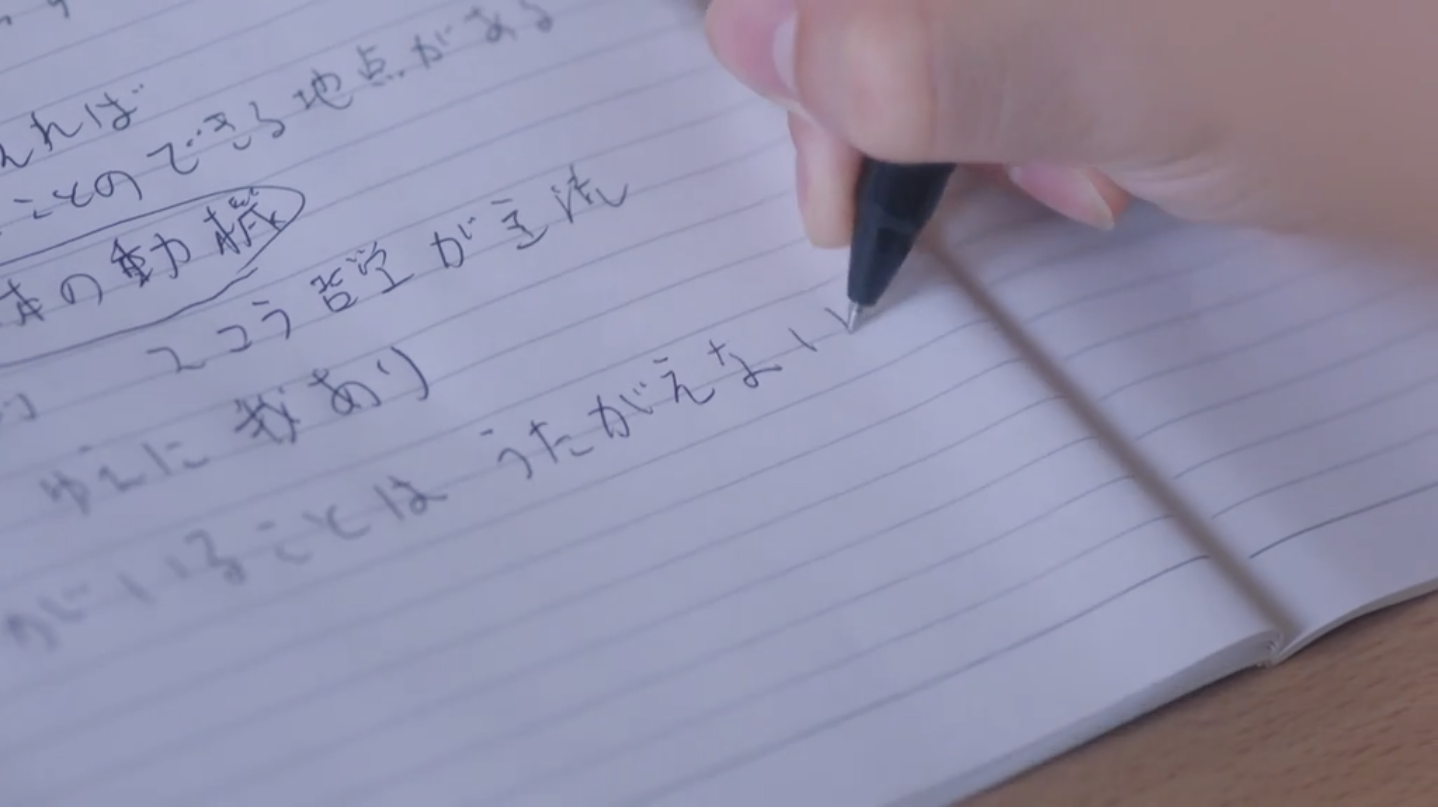 えれば
ことのできる地点がある
体の動機
スコラ哲学が主流
ゆえに 我あり
がいることは うたがえない